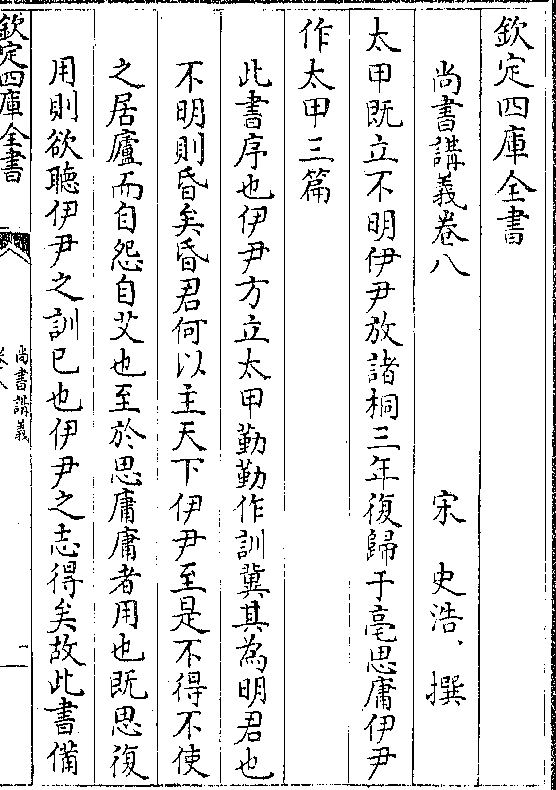 欽定四庫全書
尚書講義卷八　宋　史浩　撰
太甲既立不明伊尹放諸桐三年復歸于亳思庸伊尹
作太甲三篇
此書序也伊尹方立太甲勤勤作訓冀其為明君也
不明則昏矣昏君何以主天下伊尹至是不得不使
之居廬而自怨自艾也至於思庸庸者用也既思復
用則欲聽伊尹之訓已也伊尹之志得矣故此書備
欽定四庫全書
尚書講義
卷八
一